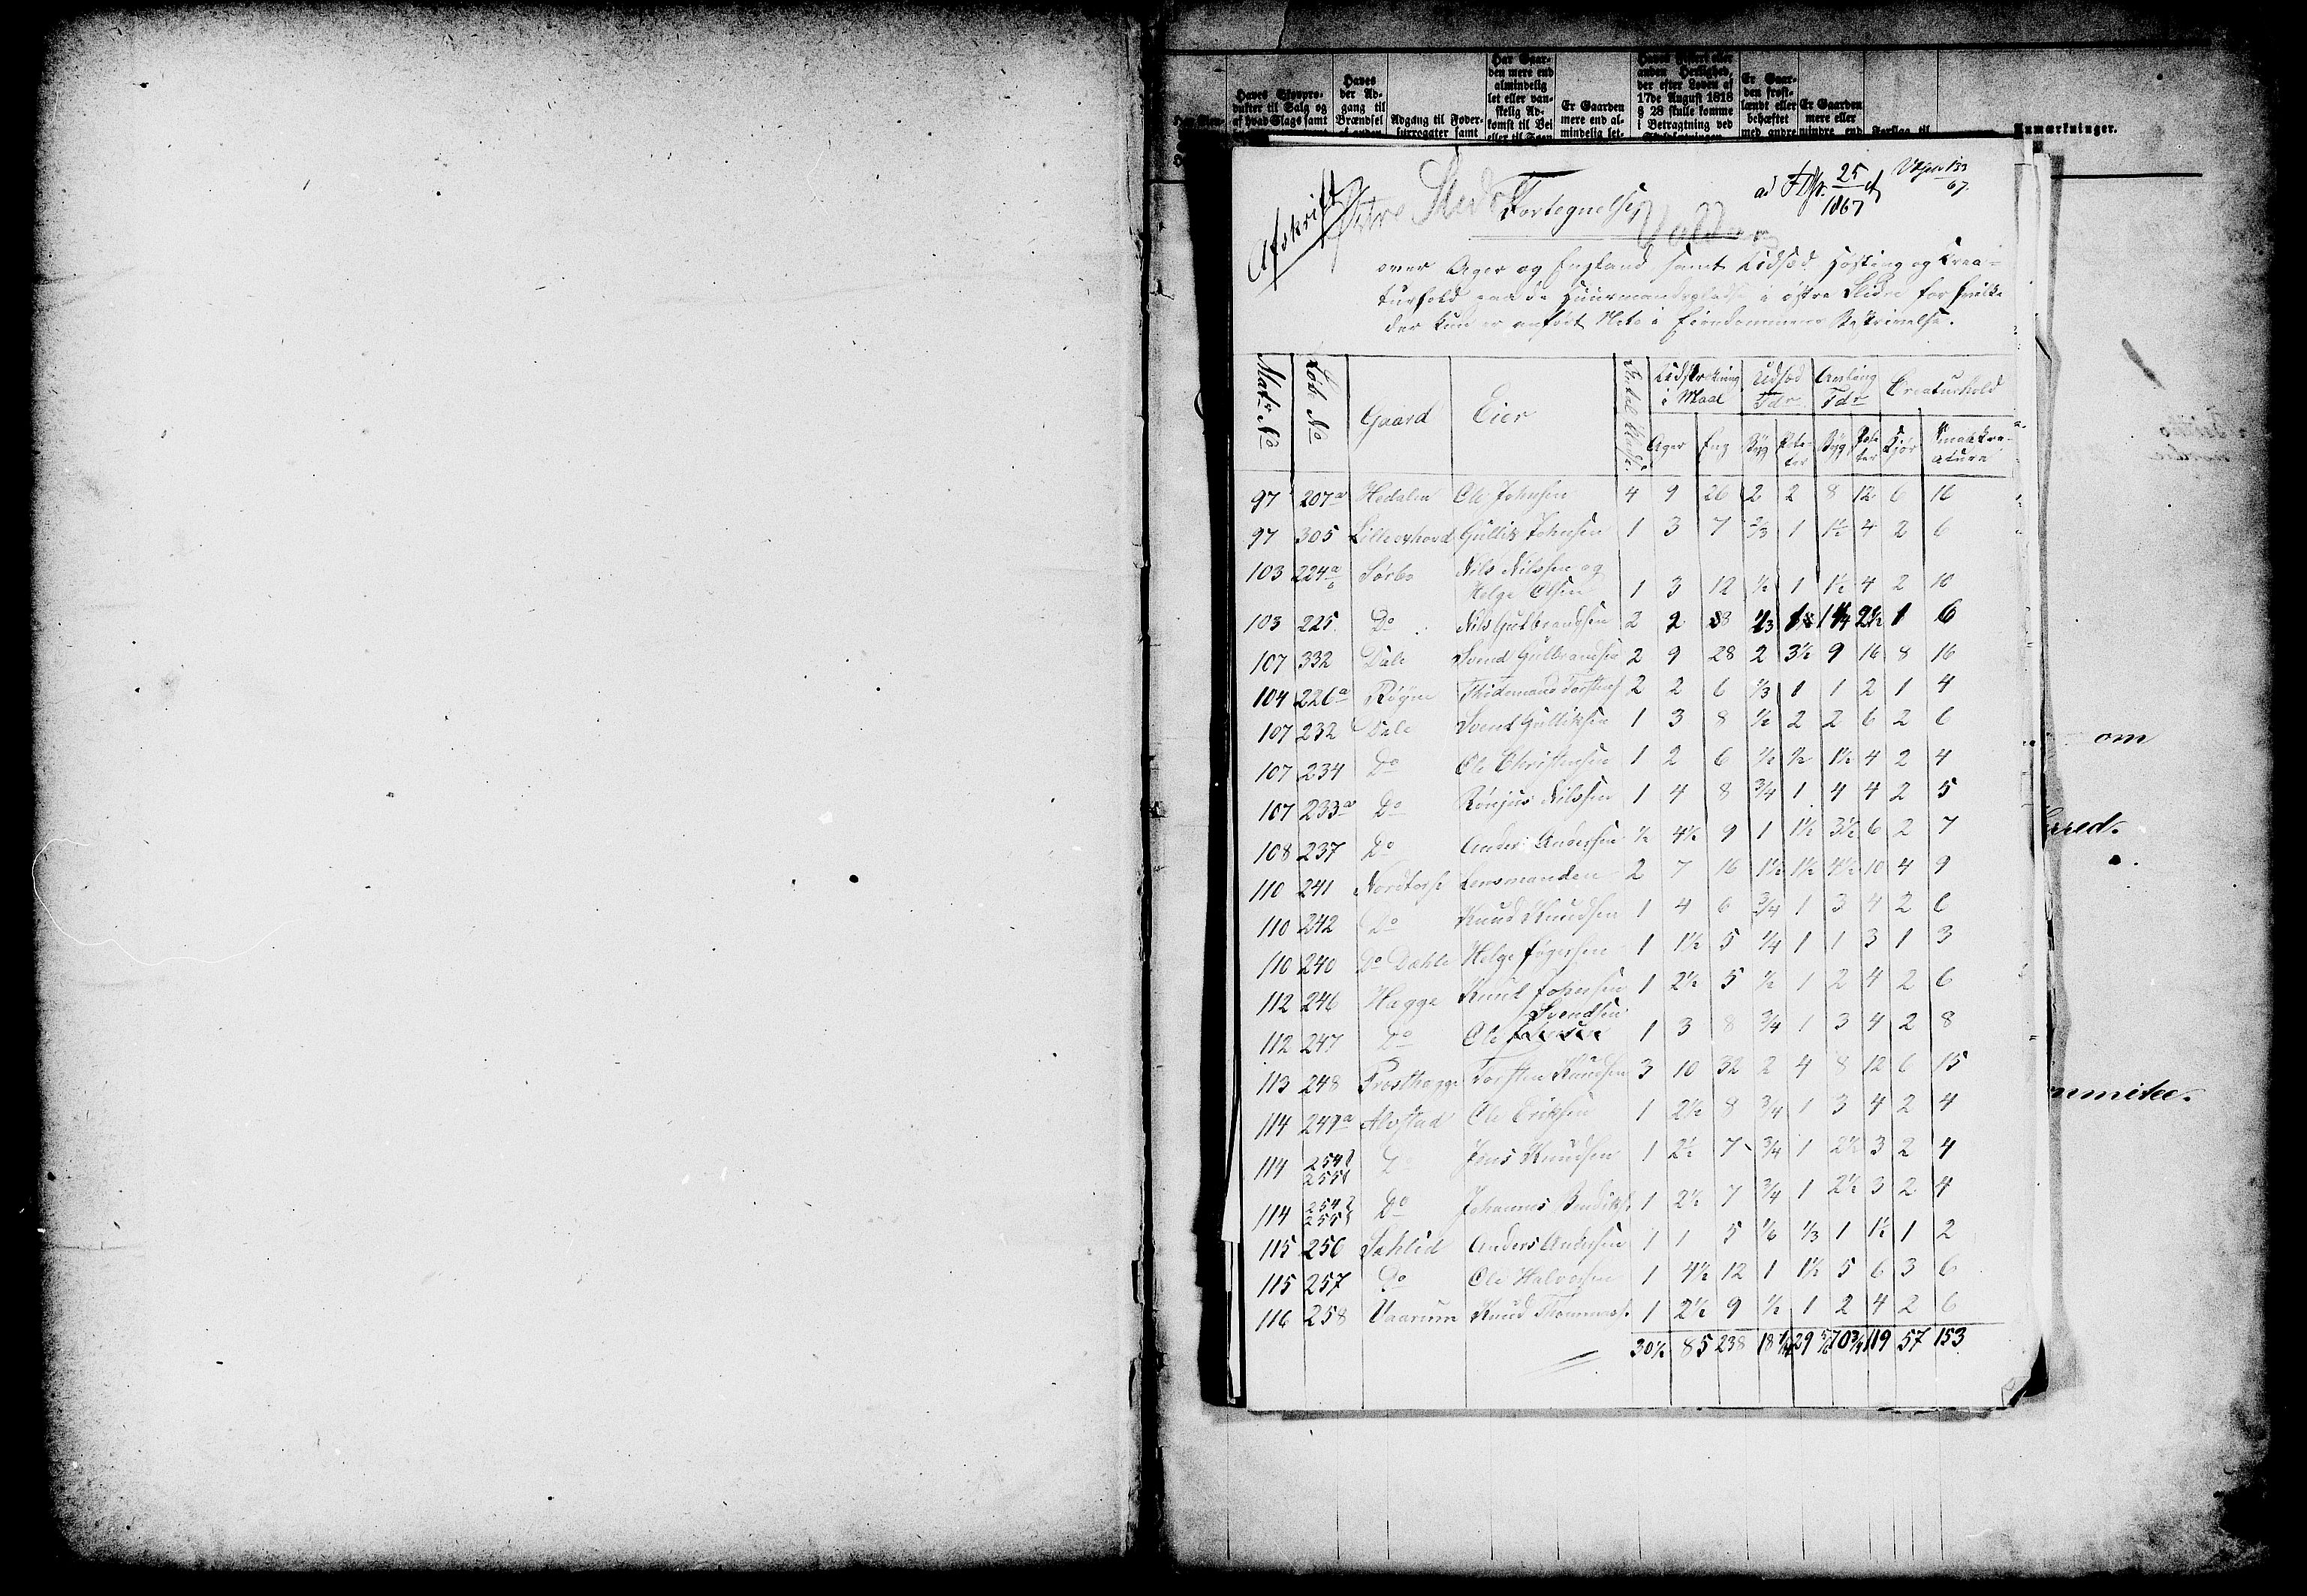 Haves Skovpro-
dukter til Salg og
af hvad Slags samt
Haves
der Ad-
gang til
Brændsel
Adgang til Foder-
surrogater samt
Har Gaar-
den mere end
almindelig
let eller van-
skelig Ad-
komst til Vei
eller til Søen
Er Gaarden
mere end al-
mindelig let-
anden Herlighed,
der efter Loven af
17de August 1818
§ 28 skulle komme
i Betragtning ved
Er Gaar-
den frost-
lændt eller
behæftet
med andre
Er Gaarden
mere eller
mindre end
Forslag til
Anmærkninger.
Afskrift
Fortegnelse
Valders
ad 25
1867
over Ager og England samt Udsæd Høsting og Crea-
turhold paa de Huusmandspladse i østre Slidre for hvilke
der kun er anført Heste i Eiendommens Beskrivelse.
Matr No | Løb No | Gaard | Eier | Antal Pladse | Udstrækning i Maal | Udsæd Tdr | Avling Tdr | Creaturhold
Ager | Eng | Byg | Pote-ter | Byg | Pote-ter | Kjør | Smaakre-aturer
97 207a Hedalen Ole Johnsen 4 9 26 2 2 8 12 6 16
97 305 Lilleoxhovd Gullik Johnsen 1 3 7 2/3 1 1½ 4 2 6
103 224a Sørbo Nils Nilssen og
Helge Olsen 1 3 12 ½ 1 1½ 4 2 10
103 225 Do Nils Gulbrandsen 2 2 8 1/3 1 1¼ 2½ 1 6
107 332 Dale Svend Gulbrandsen 2 9 28 2 3½ 9 16 8 16
104 226a Røyne Thidemand Torstens 2 2 6 1/3 1 1 2 1 4
107 232 Dale Svend Gulliksen 1 3 8 ½ 2 2 6 2 6
107 234 Do Ole Christensen 1 2 6 ½ ½ 1½ 4 2 4
107 233a Do Rønjus Nilssen 1 4 8 ¾ 1 4 4 2 5
108 237 Do Anders Andersen ½ 4½ 9 1 1½ 3½ 6 2 7
110 241 Nordtorp Lensmanden 2 7 16 1½ 1½ 4½ 10 4 9
110 242 Do Knud Knudsen 1 4 6 ¾ 1 3 4 2 6
110 240 Do Dæhle Helge 1 1½ 5 ¼ 1 1 3 1 3
112 246 Hagge Knud Johnsen 1 2½ 5 ½ 1 2 4 2 6
Svendsen
112 247 Do Ole 1 3 8 ¾ 1 3 4 2 8
113 248 Prosthagge Torsten Knudsen 3 10 32 2 4 8 12 6 15
114 249a Alvstad Ole Eriksen 1 2½ 8 ¾ 1 3 4 2 4
114 254 255 Do Jens Knudsen 1 2½ 7 ¾ 1 2½ 3 2 4
114 254 255 Do Johannes Bendiks. 1 2½ 7 ¾ 1 2½ 3 2 4
115 250 Sæhlid Anders Andersen 1 1 5 1/6 1/3 1 1½ 1 2
115 257 Do Ole Halvorsen 1 4½ 12 1 1½ 5 6 3 6
116 258 Vaarum Knud Thommess. 1 2½ 9 ½ 1 2 4 2 6
30½ 85 238 18 29 70¾ 119 57 153
om
rred.
mmitee.